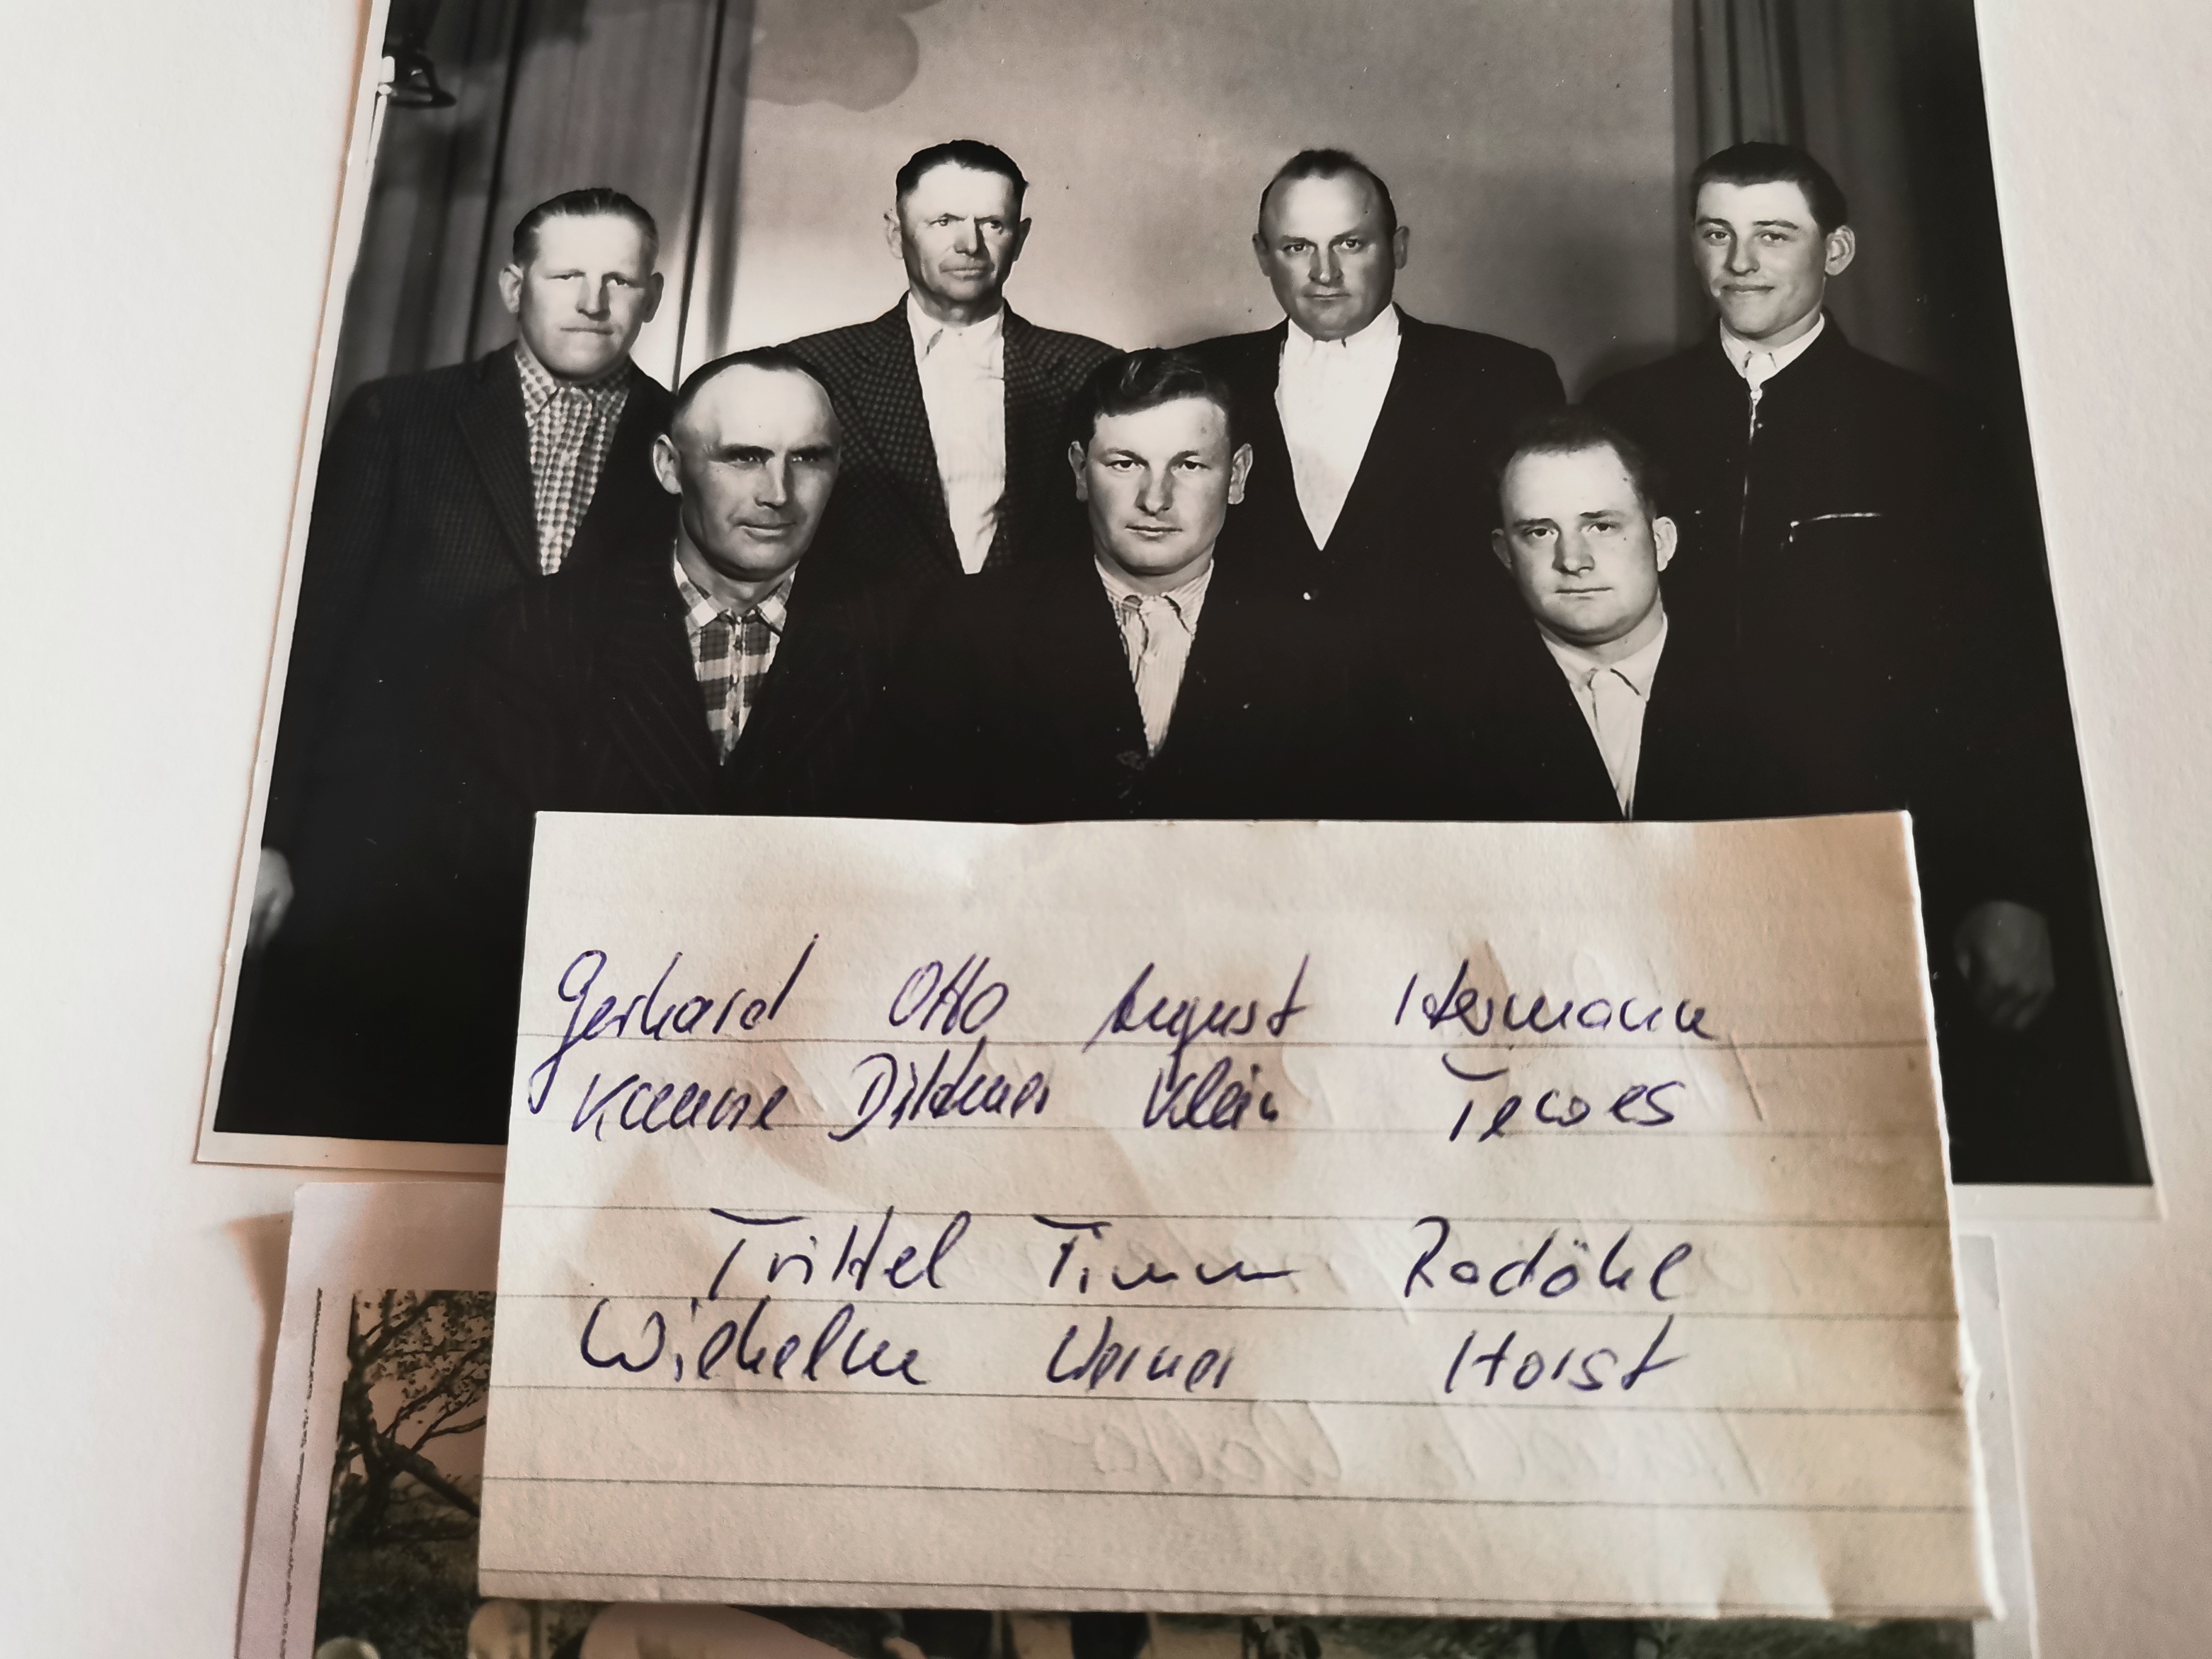 Gerhard Otto August Hermann
Klein Tewes
Trittel Timm Radöhl
Wilhelm Werner Horst